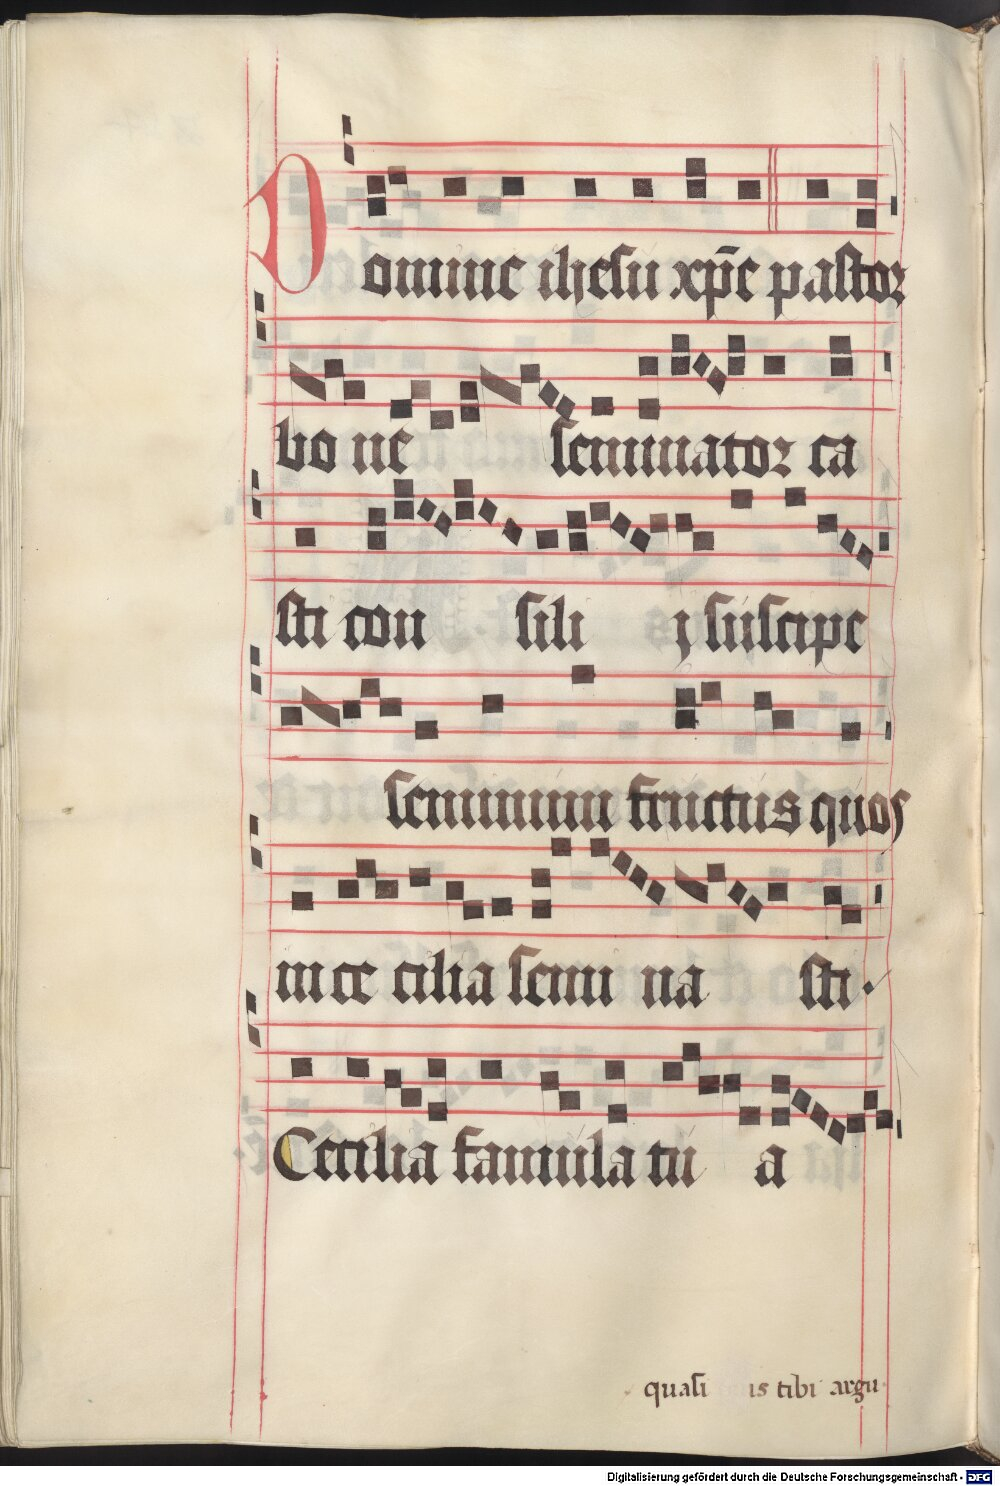 Domine ihesu xp̄e pastor
bo ne seminator ca
sti con sili j suscipe
seminum fructus quos
in ce cilia semi na sti.
Cecilia famula tu a
quasi is tibi argu
Digitalisierung gefördert durch die Deutsche Forschungsgemeinschaft - DFG